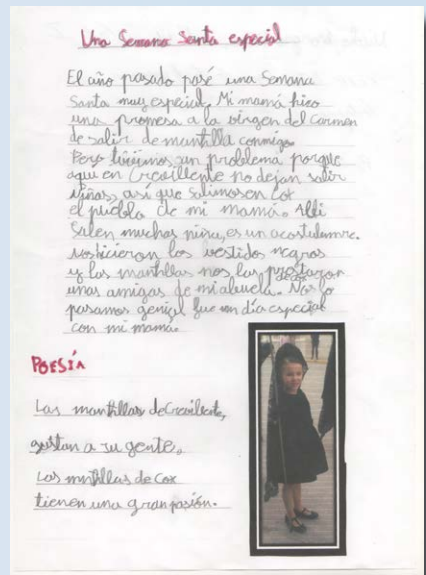 Una Semana Santa especial
El año pasado pasé una Semana
Santa muy especial. Mi mamá hico
una promesa a la virgen del Carmen
de salir de mantilla conmigo.
Pero tuvimos un problema porque
aquí en Crevillente no dejan salir
niñas, así que salimos en Cox
el pueblo de mi mamá. Allí
salen muchas niña, es un acostulumre.
nos hicieron los vestidos negros
y las mantillas nos las prestaron
unas amigas de mi abuela. Nos lo
pasamos genial fue un día especial
con mi mamá.
POESÍA
Las mantillas de Crevillente,
gustan a su gente.
Las mantillas de Cox
tienen una gran pasión.